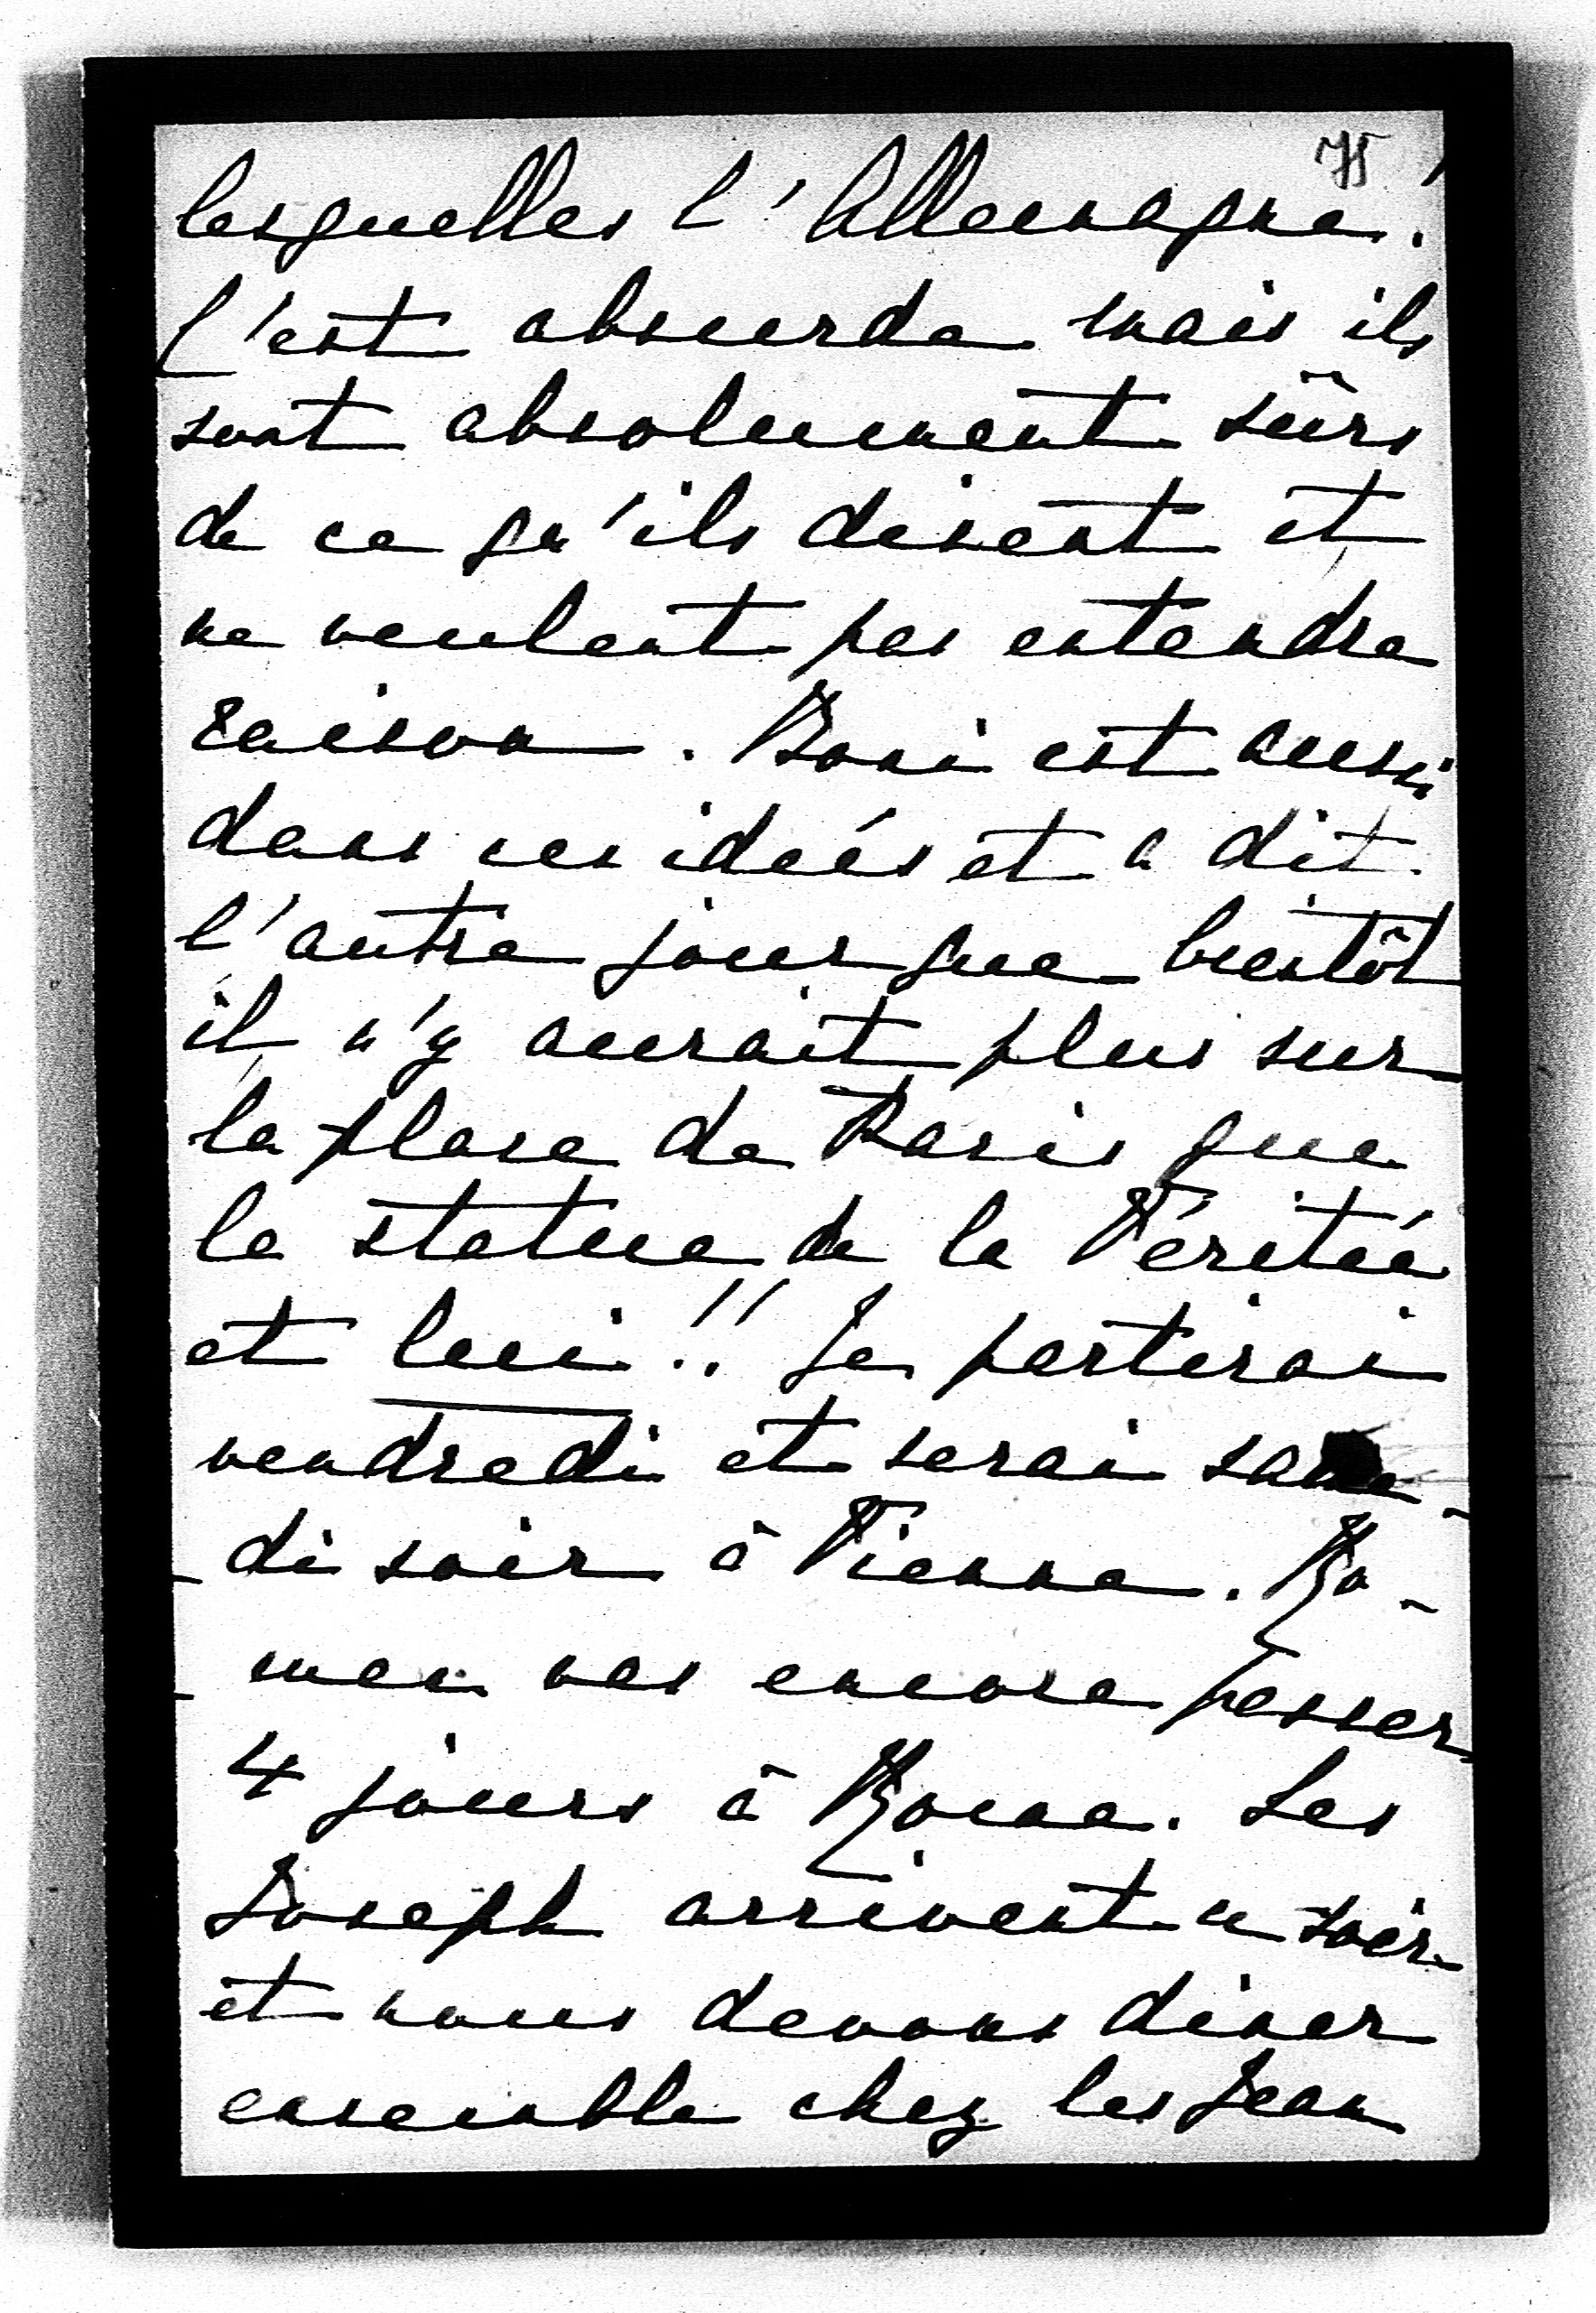 75
lesquelles l'Allemagne.
C'est absurde mais ils
sont absolument sûrs
de ce qu'ils disent et
ne veulent pas entendre
raison. Boni est aussi
dans ces idées et a dit
l'autre jour que bientôt
il n'y aurait plus sur
la place de Paris que
la statue de la Vérité
et lui!! Je partirai
vendredi et serai same-
di soir à Vienne. Ro-
man vas encore passer
4 jours à Rome. Les
Joseph arrivent ce soir
et nous devons diner
ensemble chez les Jean